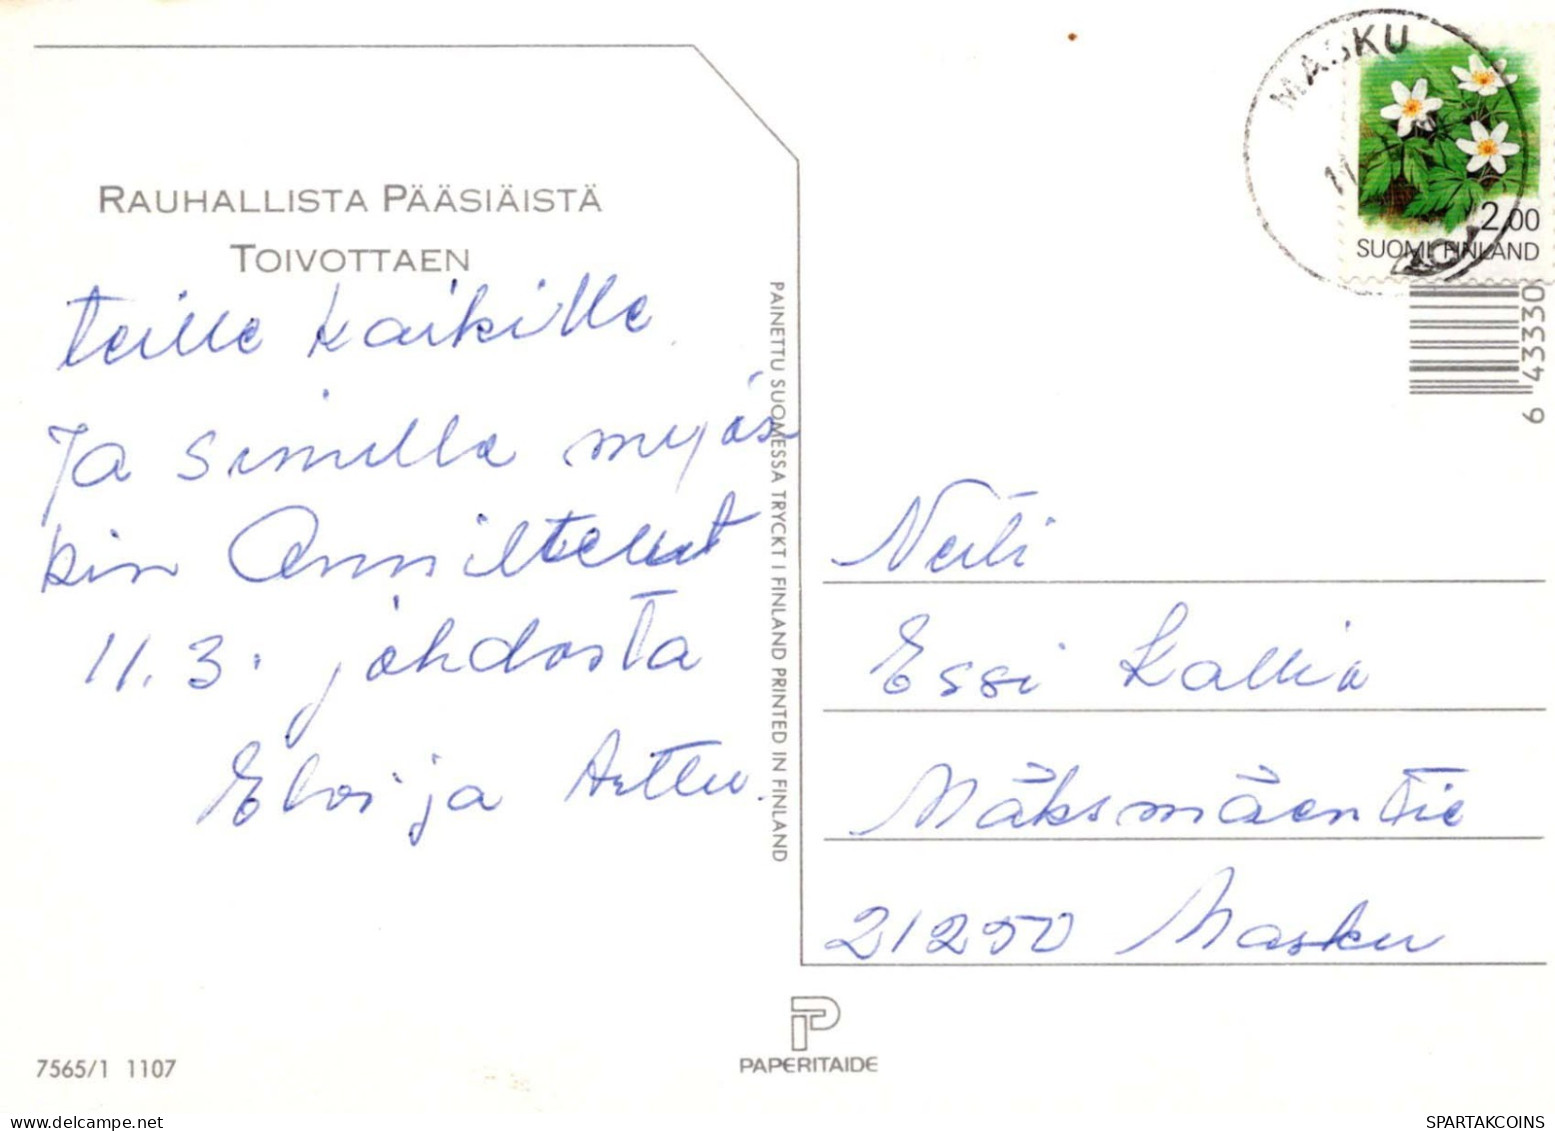 RAUHALLISTA PÄÄSIÄISTÄ
TOIVOTTAEN
teille kaikille
Ja sinulle myös
kin Onnittelut
11.3. johdosta
ja Arttu.
PAINETTU SUOMESSA TRYCKT I FINLAND PRINTED IN FINLAND
MASKU
11
2,00
SUOMI FINLAND
6 43330
Neiti
Essi Kallio
Mäksmäentie
21250 Masku
PAPERITAIDE
7565/1 1107
SPARTAKCOINS